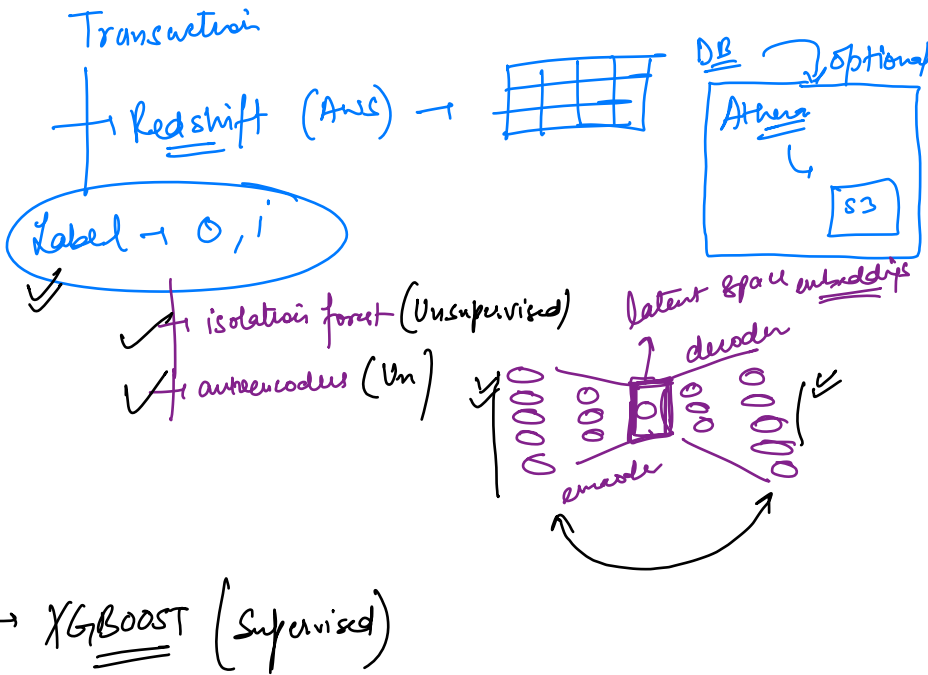 Transaction
Redshift (AWS) →
DB
optional
Athena
S3
Label → 0, 1
isolation forest (Unsupervised)
autoencoders (Un)
latent space embeddigs
decoder
encoder
→ XGBOOST (Supervised)